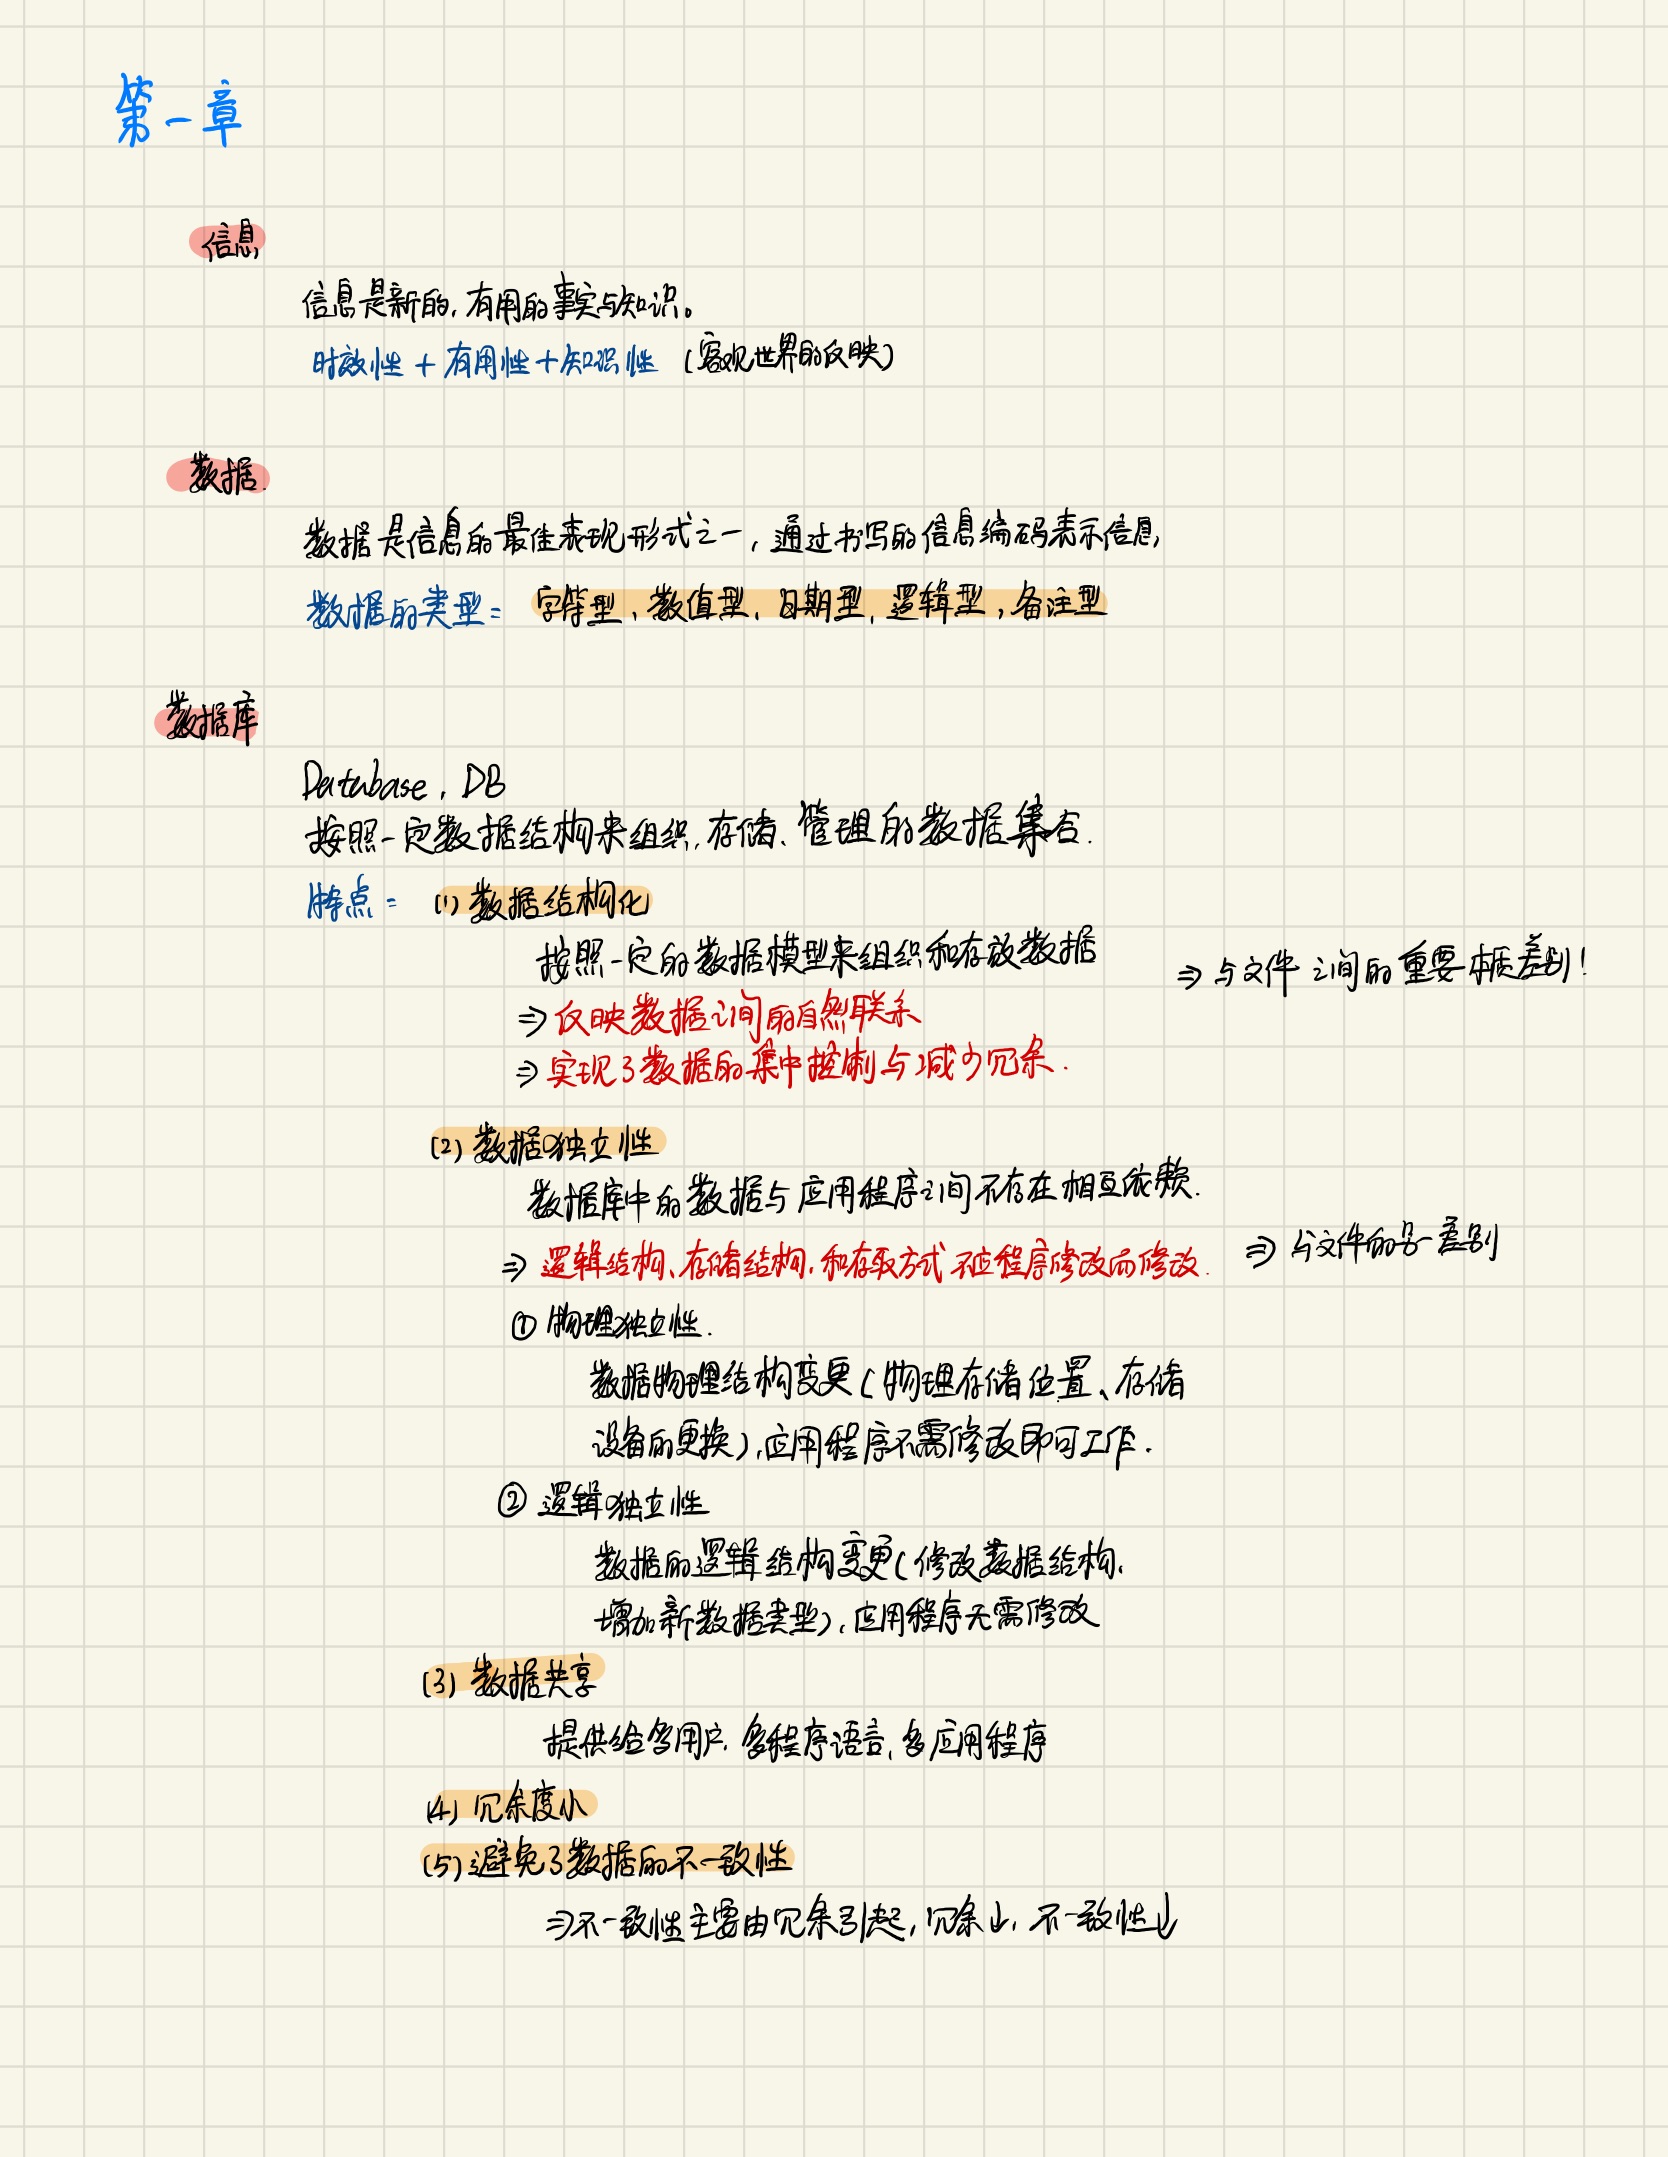 第一章
信息
信息是新的,有用的事实与知识。
时效性 + 有用性 + 知识性 (客观世界的反映)
数据.
数据是信息的最佳表现形式之一,通过书写的信息编码表示信息,
数据的类型= 字符型、数值型、日期型、逻辑型,备注型
数据库
Database, DB
按照一定数据结构来组织,存储、管理的数据集合.
特点= (1) 数据结构化
按照一定的数据模型来组织和存放数据 ⇒ 与文件之间的重要本质差别!
⇒ 反映数据之间的自然联系
⇒ 实现了数据的集中控制与减少冗余.
(2) 数据独立性
数据库中的数据与应用程序之间不存在相互依赖.
⇒ 逻辑结构、存储结构,和存取方式不应程序修改而修改. ⇒ 与文件的另一差别
① 物理独立性.
数据物理结构变更(物理存储位置、存储
设备的更换),应用程序不需修改即可工作.
② 逻辑独立性
数据的逻辑结构变更(修改数据结构,
增加新数据类型),应用程序无需修改
(3) 数据共享
提供给多用户,多程序语言,多应用程序
(4) 冗余度小
(5) 避免了数据的不一致性
⇒不一致性主要由冗余引起,冗余↓,不一致性↓